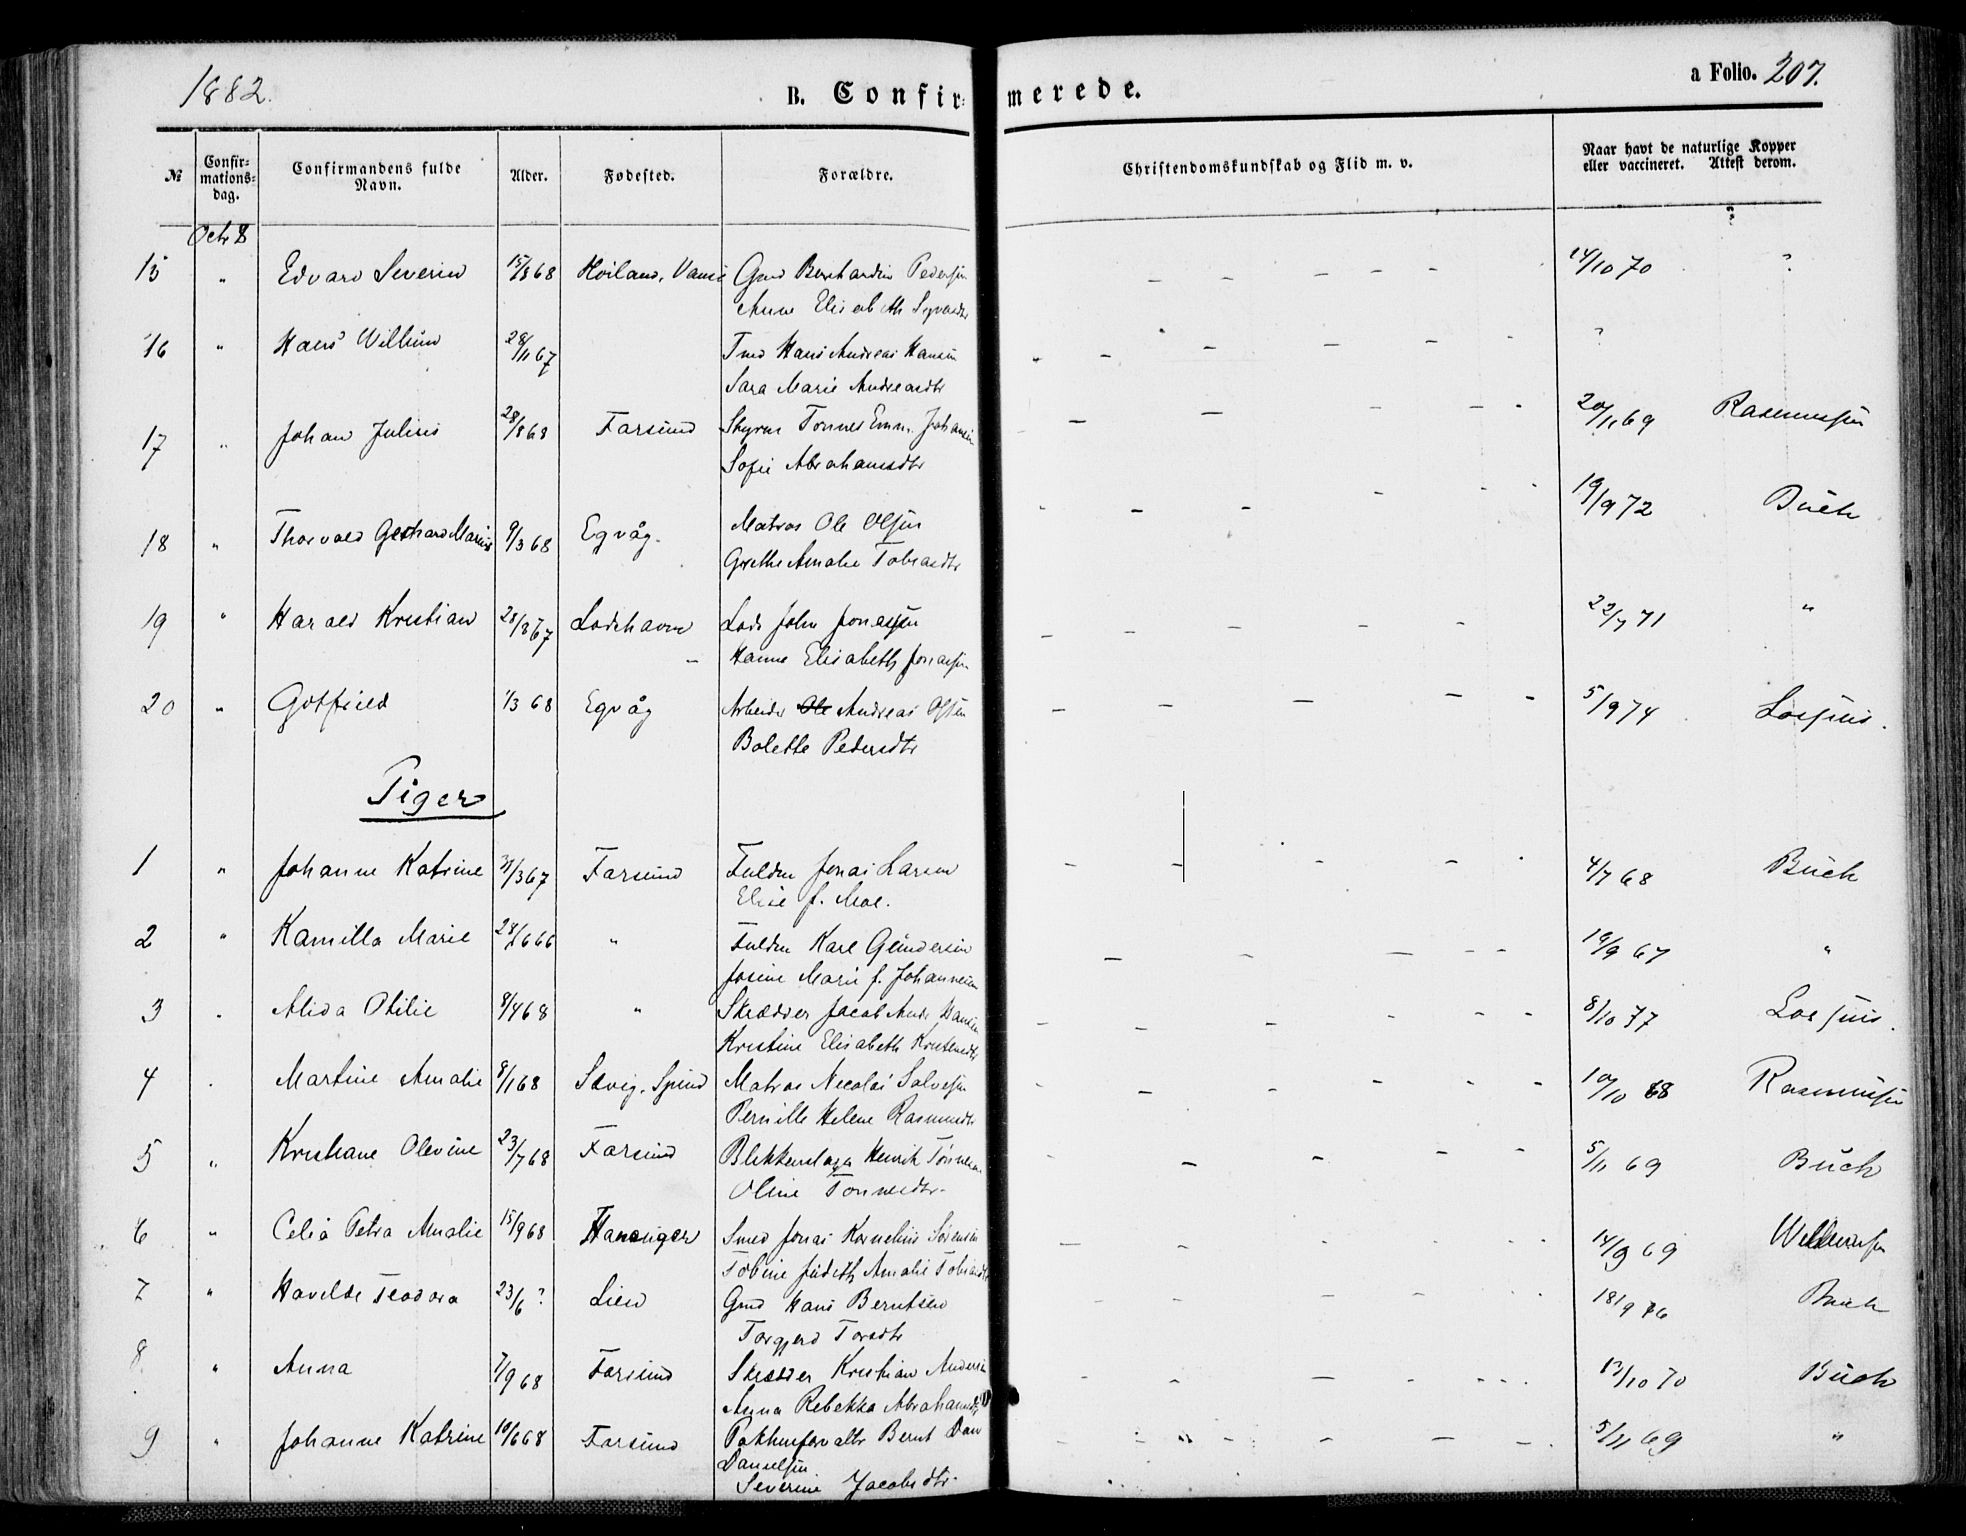 1882.
B. Confirmerede.
a Folio. 207.
№ Confirmationsdag. Confirmandens fulde Navn. Alder. Fødested. Forældre. Christendomskundskab og Flid m. v. Naar havt de naturlige Kopper eller vaccineret. Attest derom.
Octr 8
15 " Edvard Severin 15/8 68 Høiland, Vanse Gmd Bernhardin Pedersen 14/10 70 ?
Anne Elisabeth
16 " Hans Wilhim 28/11 67 Tmd Hans Andreas Hansen ?
Sara Marie Andreasdtr
17 " Johan Julius 28/8 68 Farsund Styrm Tønnes Emm. Johansen 20/11 69 Rasmussen
Sofie Abrahamsdtr
18 " Thorvald Gerhard Marius 9/3 68 Egvåg. Matros Ole Olsen 19/9 72 Buch
Grethe Amalie Tobiasdtr
19 " Harald Kristian 28/8 67 Lodshavn Lods John Jonassen 22/7 71 "
Hanne Elisabeth Jonassen
20 " Gotfried 1/3 68 Egvåg Arbeider Ole Andreas Olsen 5/9 74 Lossius.
Bolette Pedersdtr
Piger
1 " Johanne Katrine 31/3 67 Farsund Tulden Jonas Larsen 4/7 68 Buch
Elise f. Moe.
2 " Kamilla Marie 28/6 66 " Tulden Karl Gundersen 19/9 67 "
Josine Marie f. Johannesen
3 . Alida Otilie 8/4 68 " Skrædder Jacob Andr Hansen 8/10 77 Lossius.
Kristine Elisabeth
4 . Martine Amalie 8/1 68 Sævig, Spind Matros Nicolai Salvesen 10/10 68 Rasmussen
Pernille Helene Rasmusdtr
5 " Kristiane Olevine 23/7 68 Farsund Blikkenslager Henrik Tønnesen 5/11 69 Buch
Oline Tønnesdtr.
6 " Celia Petra Amalie 15/9 68 Havanger Smed Jonas Kornelius Sørensen 14/9 69 Willumsen
Tobine Judith Amalie Tobiasdtr
7 " Havelde Teodora 23/6 ? Lien Gmd Hans Berntsen 18/9 76 Buch
Torgjerd Torsdtr
8 " Anna 7/9 68 Farsund Skrædder Kristian Andersen 13/10 70 Buch
Anna Rebekka Abrahamsdtr
9 " Johanne Katrine 10/6 68 Farsund Pakhusforvalter Bernt Dan 5/11 69 "
Danielsen
Severine Jacobsdtr.